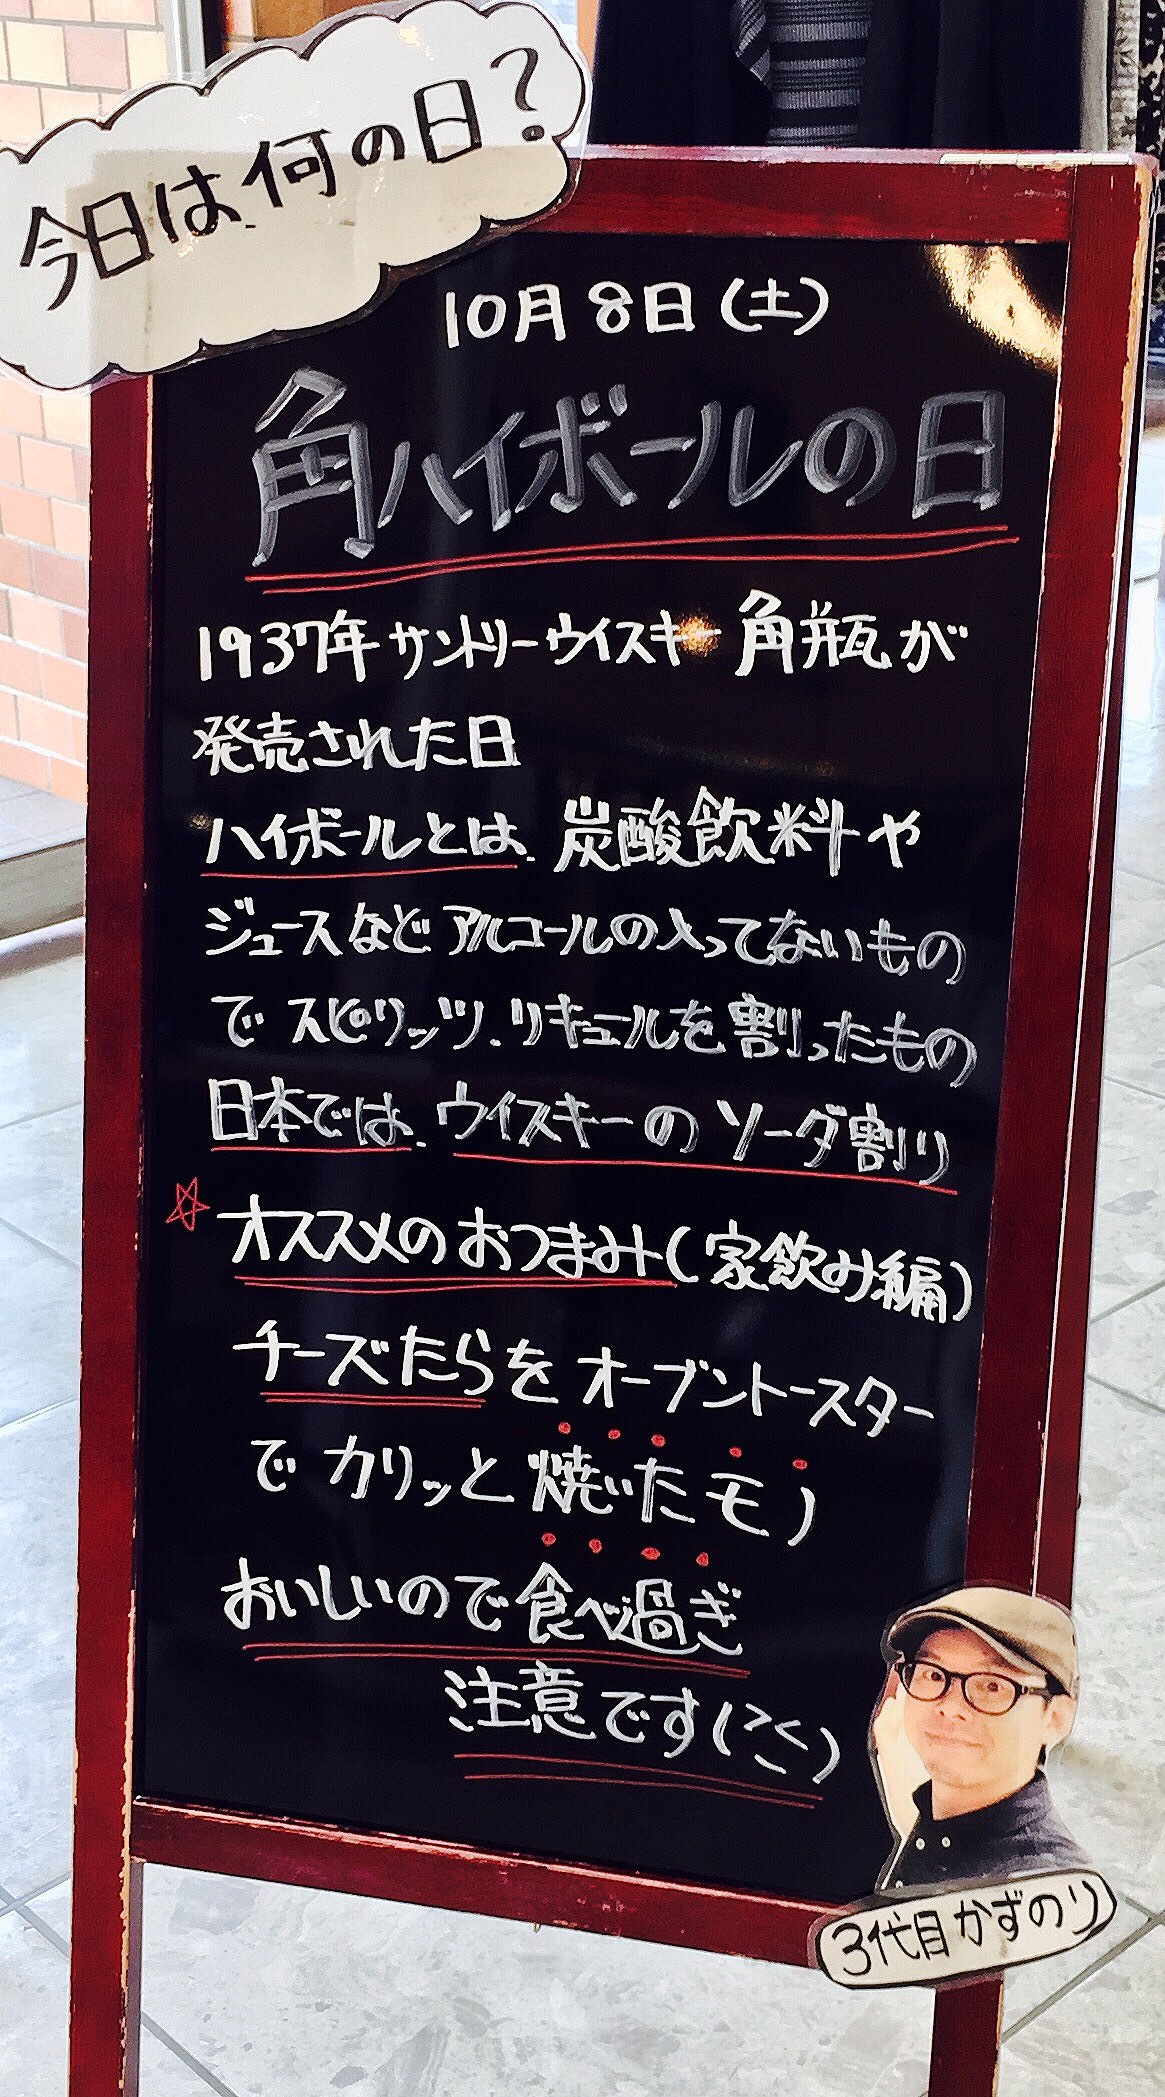 今日は何の日?
10月8日(土)
角ハイボールの日
1937年サントリーウイスキー角瓶が
発売された日
ハイボールとは、炭酸飲料や
ジュースなどアルコールの入ってないもの
でスピリッツ、リキュールを割ったもの
日本では、ウイスキーのソーダ割り
☆オススメのおつまみ(家飲み編)
チーズたらをオーブントースター
でカリッと焼いたモノ
おいしいので食べ過ぎ
注意です(にこ)
3代目かずのり